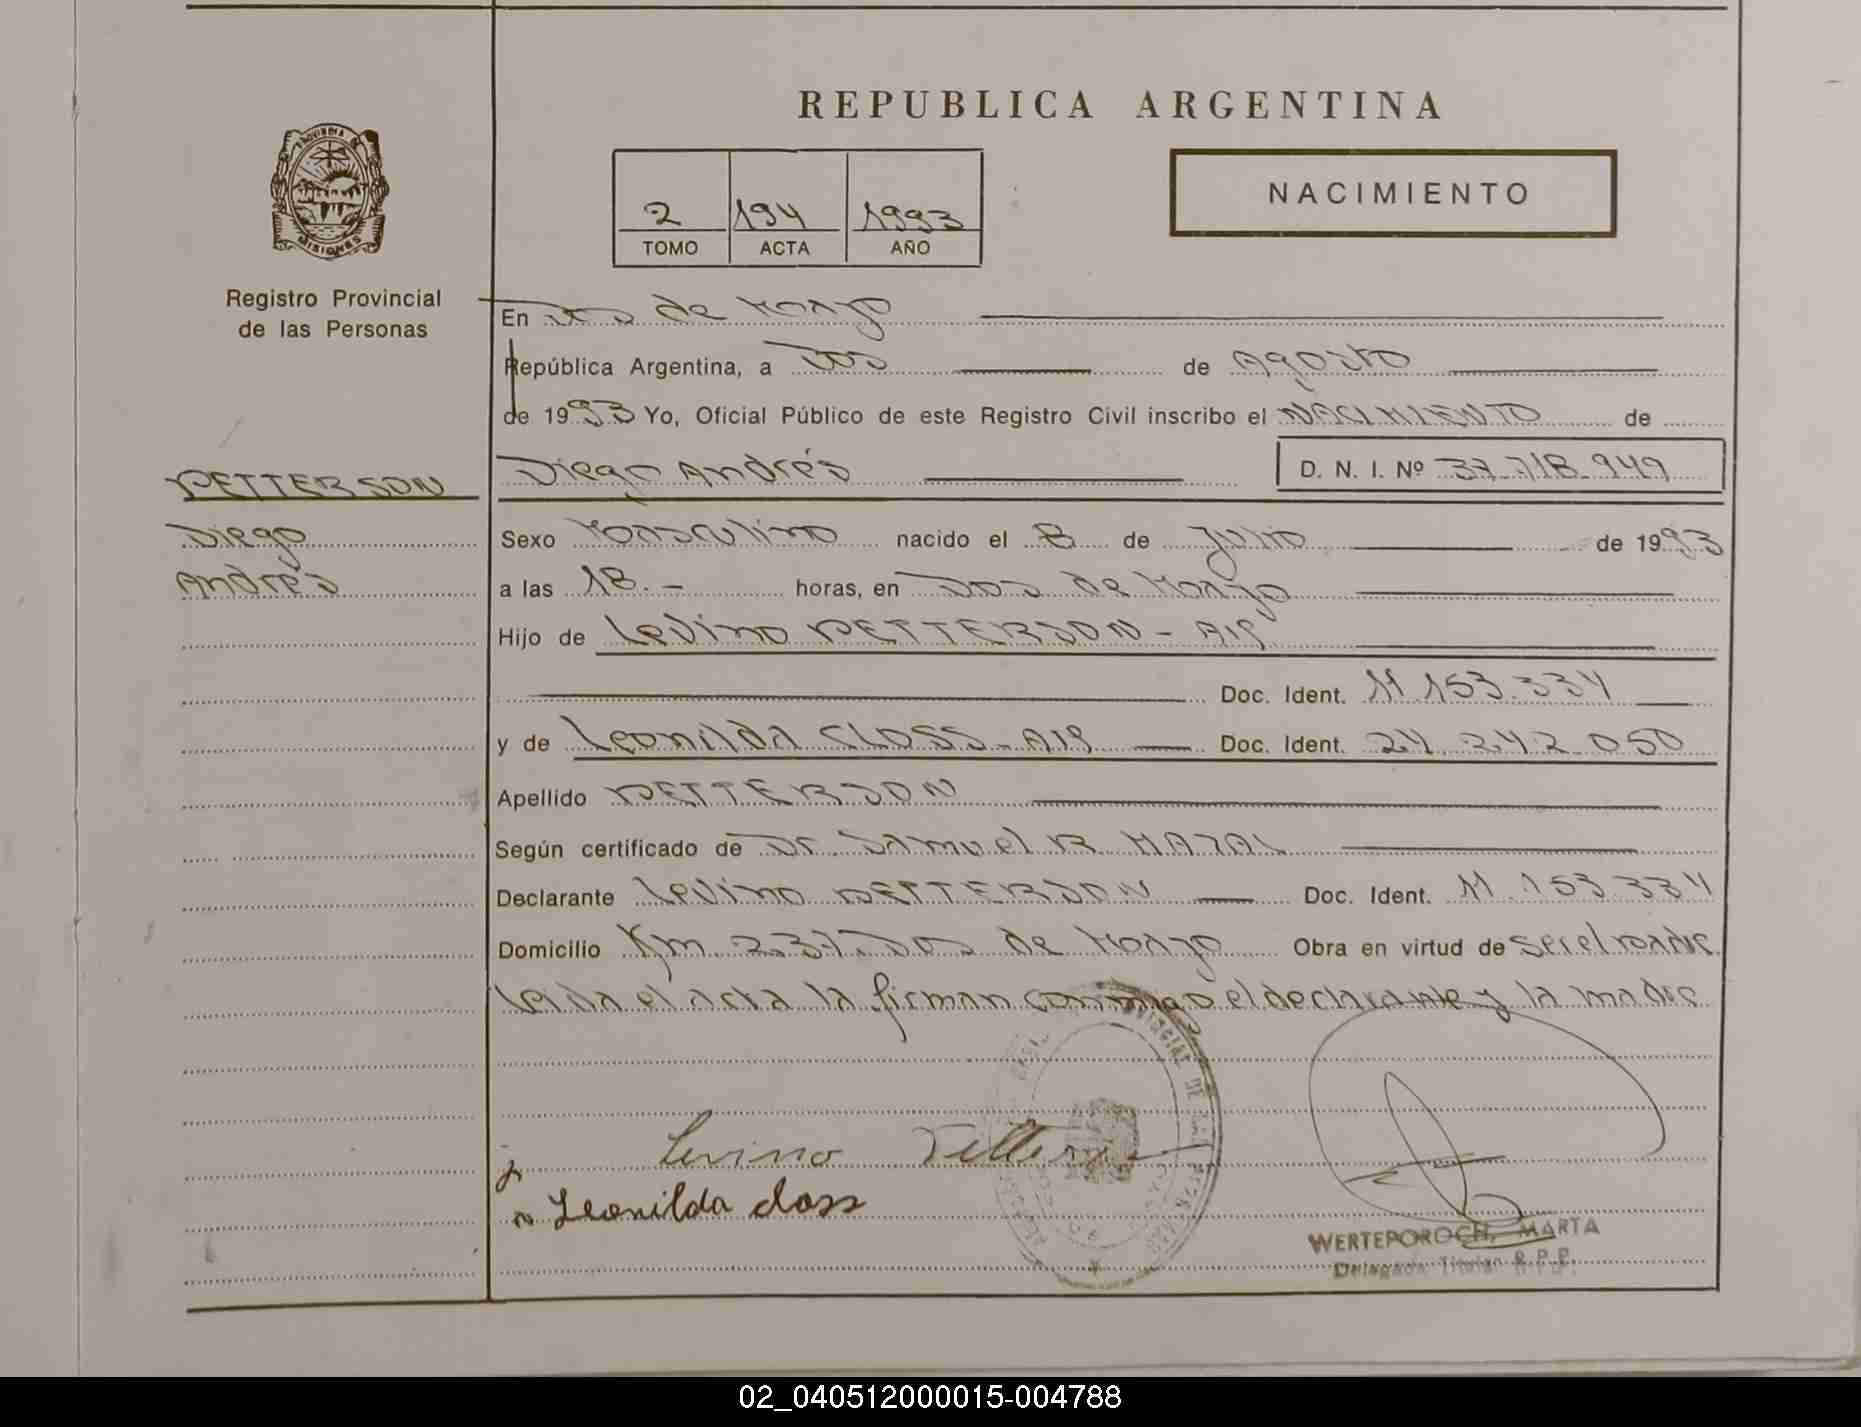 REPUBLICA ARGENTINA
NACIMIENTO
2 194 1993
TOMO ACTA AÑO
PROVINCIA DE
MISIONES
Registro Provincial
de las Personas
En Dos de Mayo
República Argentina, a Dos de Agosto
de 1993 Yo, Oficial Público de este Registro Civil inscribo el NACIMIENTO de
PETTERSON
Diego Andrés D. N. I. Nº 37.718.949
Diego
Sexo Masculino nacido el 8 de Julio de 1993
Andrés
a las 18.- horas, en Dos de Mayo
Hijo de Levino PETTERSON - Arg
Doc. Ident. 11.153.334
y de Leonilda CLOSS - Arg Doc. Ident. 24.242.050
Apellido PETTERSON
Según certificado de Dr. Samuel R MAZAL
Declarante Levino PETTERSON Doc. Ident. 11.153.334
Domicilio Km 237 Dos de Mayo Obra en virtud de ser el padre
Leida el acta la firman conmigo el declarante y la madre
Levino Petterson
Leonilda closs
WERTEPOROCH, MARTA
Delegada Titular R.P.P.
02_040512000015-004788